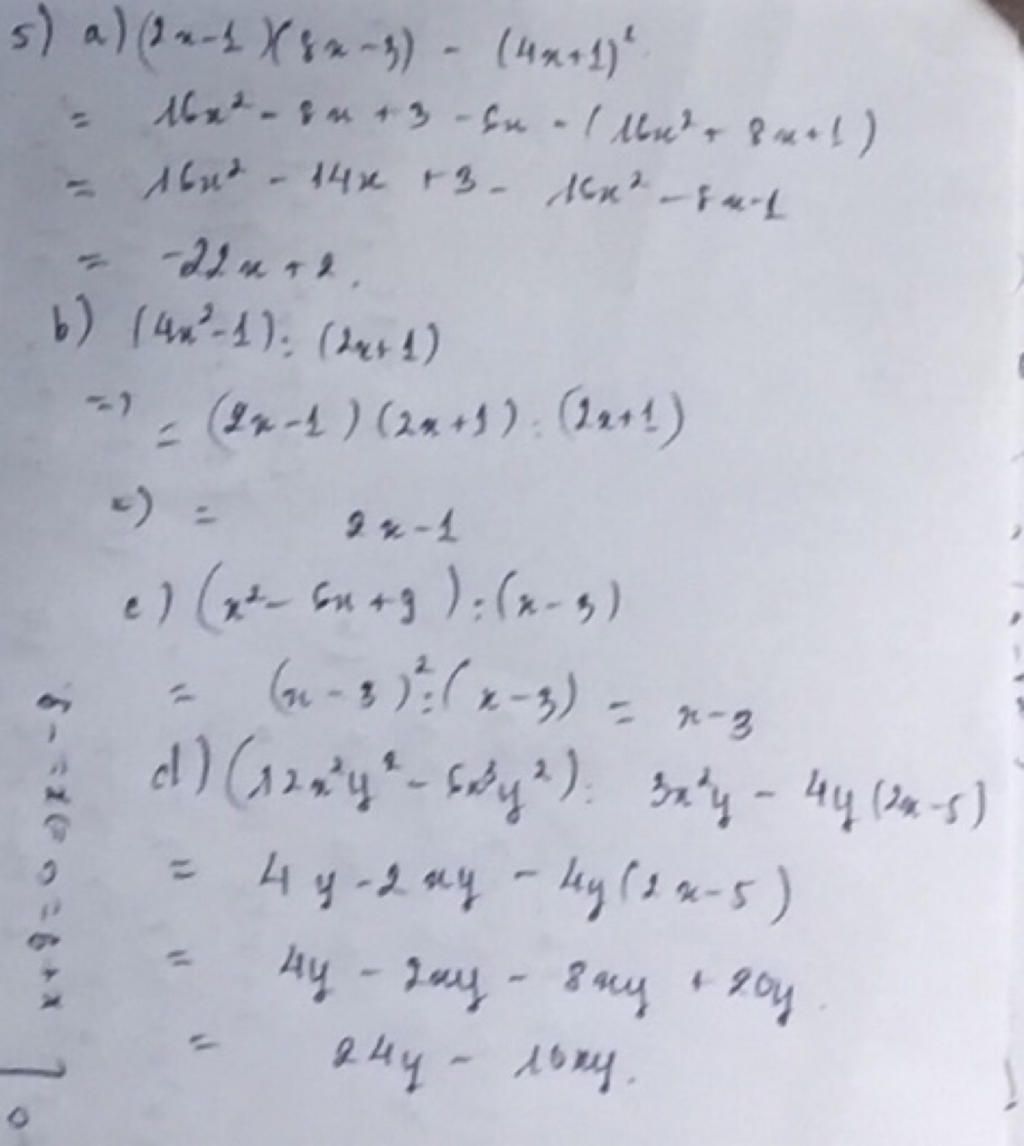 5) a) (2x-1)(8x-3) - (4x+1)²
= 16x² - 8x + 3 - 6x - (16x² + 8x+1)
= 16x² - 14x + 3 - 16x² - 8x-1
= -22x + 2.
b) (4x²-1) : (2x+1)
=> = (2x-1)(2x+1) : (2x+1)
=) = 2x-1
c) (x² - 6x + 9) : (x-3)
= (x-3)² : (x-3) = x-3
d) (12x²y² - 6x³y²) : 3x²y - 4y(2x-5)
= 4y - 2xy - 4y(2x-5)
= 4y - 2xy - 8xy + 20y.
= 24y - 10xy.
x+9=0 x=-9